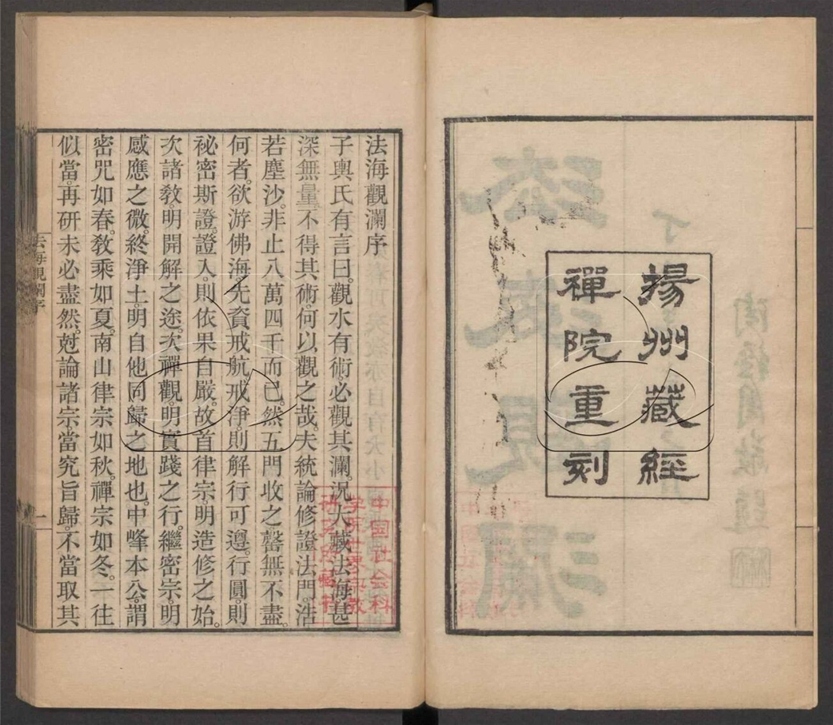 揚州藏經
禪院重刻
法海觀瀾序
子輿氏有言曰。觀水有術必觀其瀾。況大藏法海甚
深無量。不得其術何以觀之哉。夫統論修證法門。浩
若塵沙。非止八萬四千而已。然五門收之罄無不盡。
何者。欲游佛海先資戒航。戒淨則解行可遵。行圓則
祕密斯證。證入則依果自嚴。故首律宗明造修之始。
次諸教明開解之途。次禪觀明實踐之行。繼密宗明
感應之微。終淨土明自他同歸之地也。中峰本公謂
密咒如春。教乘如夏。南山律宗如秋。禪宗如冬。一往
似當。再研未必盡然。尅論諸宗。當究旨歸。不當取其
法海觀瀾序 一
中國社會科